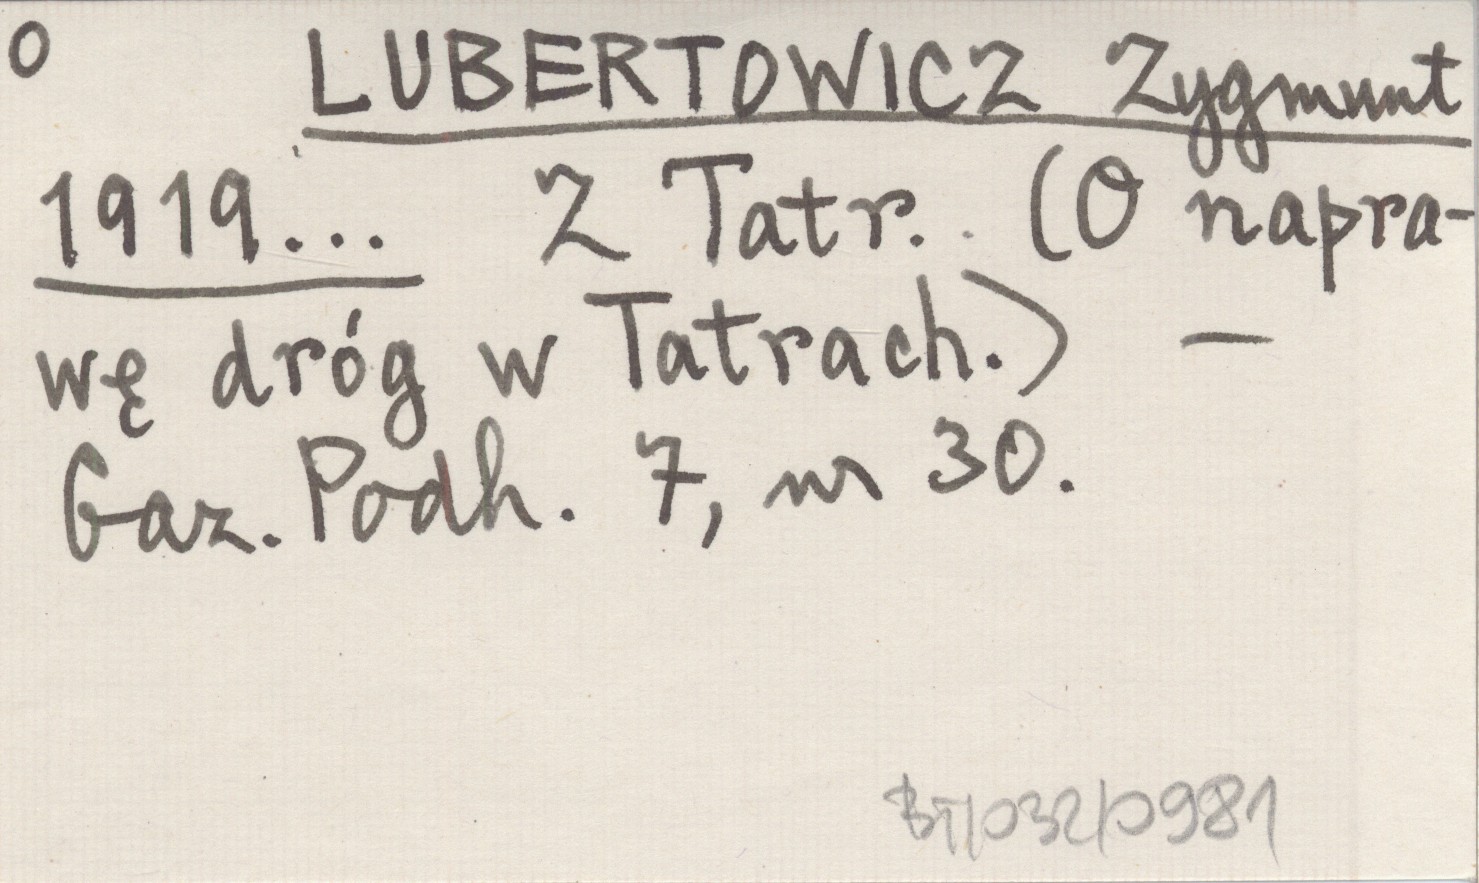 O LUBERTOWICZ Zygmunt
1919... Z Tatr. (O napra-
wę dróg w Tatrach.) —
Gaz. Podh. 7, nr 30.
BT/032/0981